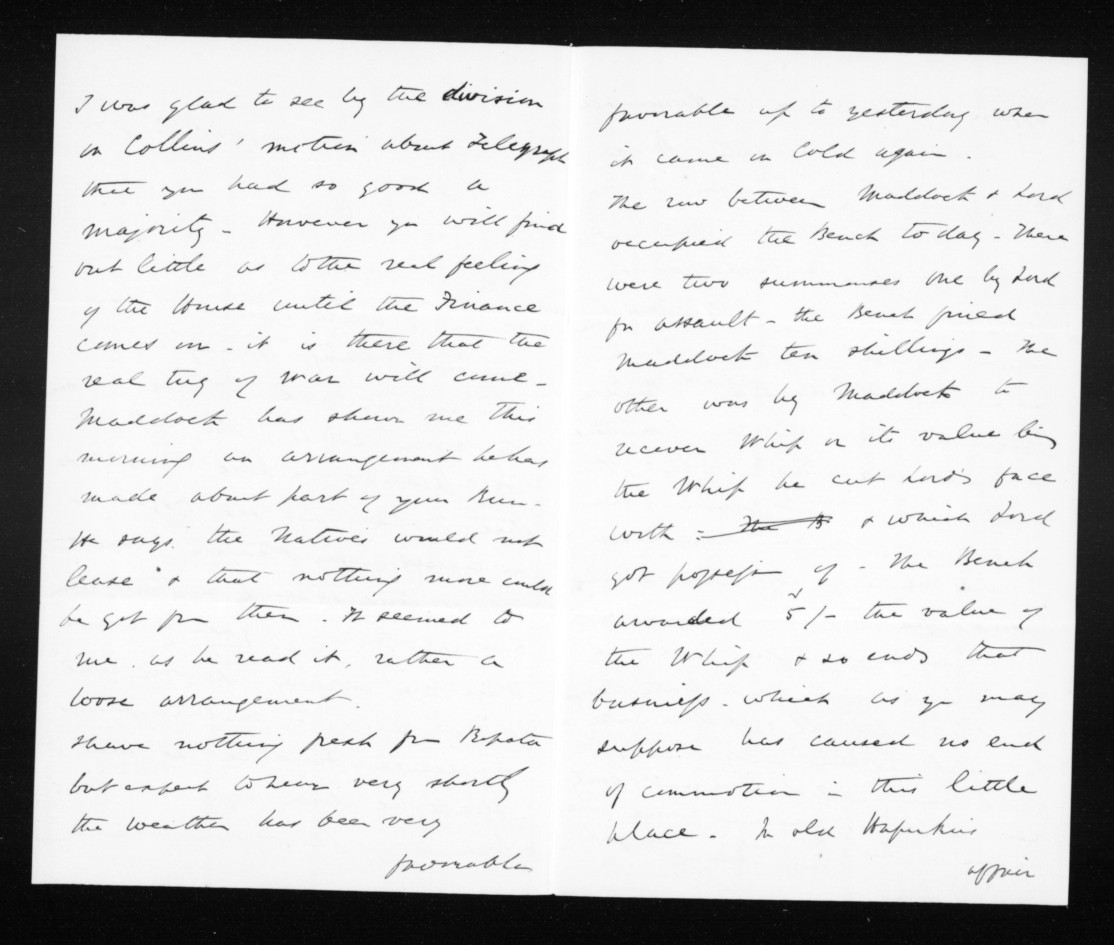 I was glad to see by the division
on Collins' motion about Telegraph
that you had so good a
majority - However you will find
out little as to the real feeling
of the House until the Finance
comes on - it is there that the
real tug of war will come -
Maddock has shown me this
morning an arrangement he has
made about part of your Run -
He says the Natives would not
lease & that nothing more could
be got from them. It seemed to
me, as he read it, rather a
loose arrangement.
I have nothing fresh from
but expect to hear very shortly
the weather has been very
favorable
favorable up to yesterday when
it came on Cold again.
The row between Maddock & Lord
occupied the Bench to day - There
were two summonses one by Lord
for assault - the Bench fined
Maddock ten shillings - The
other was by Maddock to
recover Whip or its value being
the Whip he cut Lord's face
with - The B & which Lord
got possession of - The Bench
awarded 5/- the value of
the Whip & so ends that
business - which as you may
suppose has caused no end
of commotion in this little
place - In old
affair